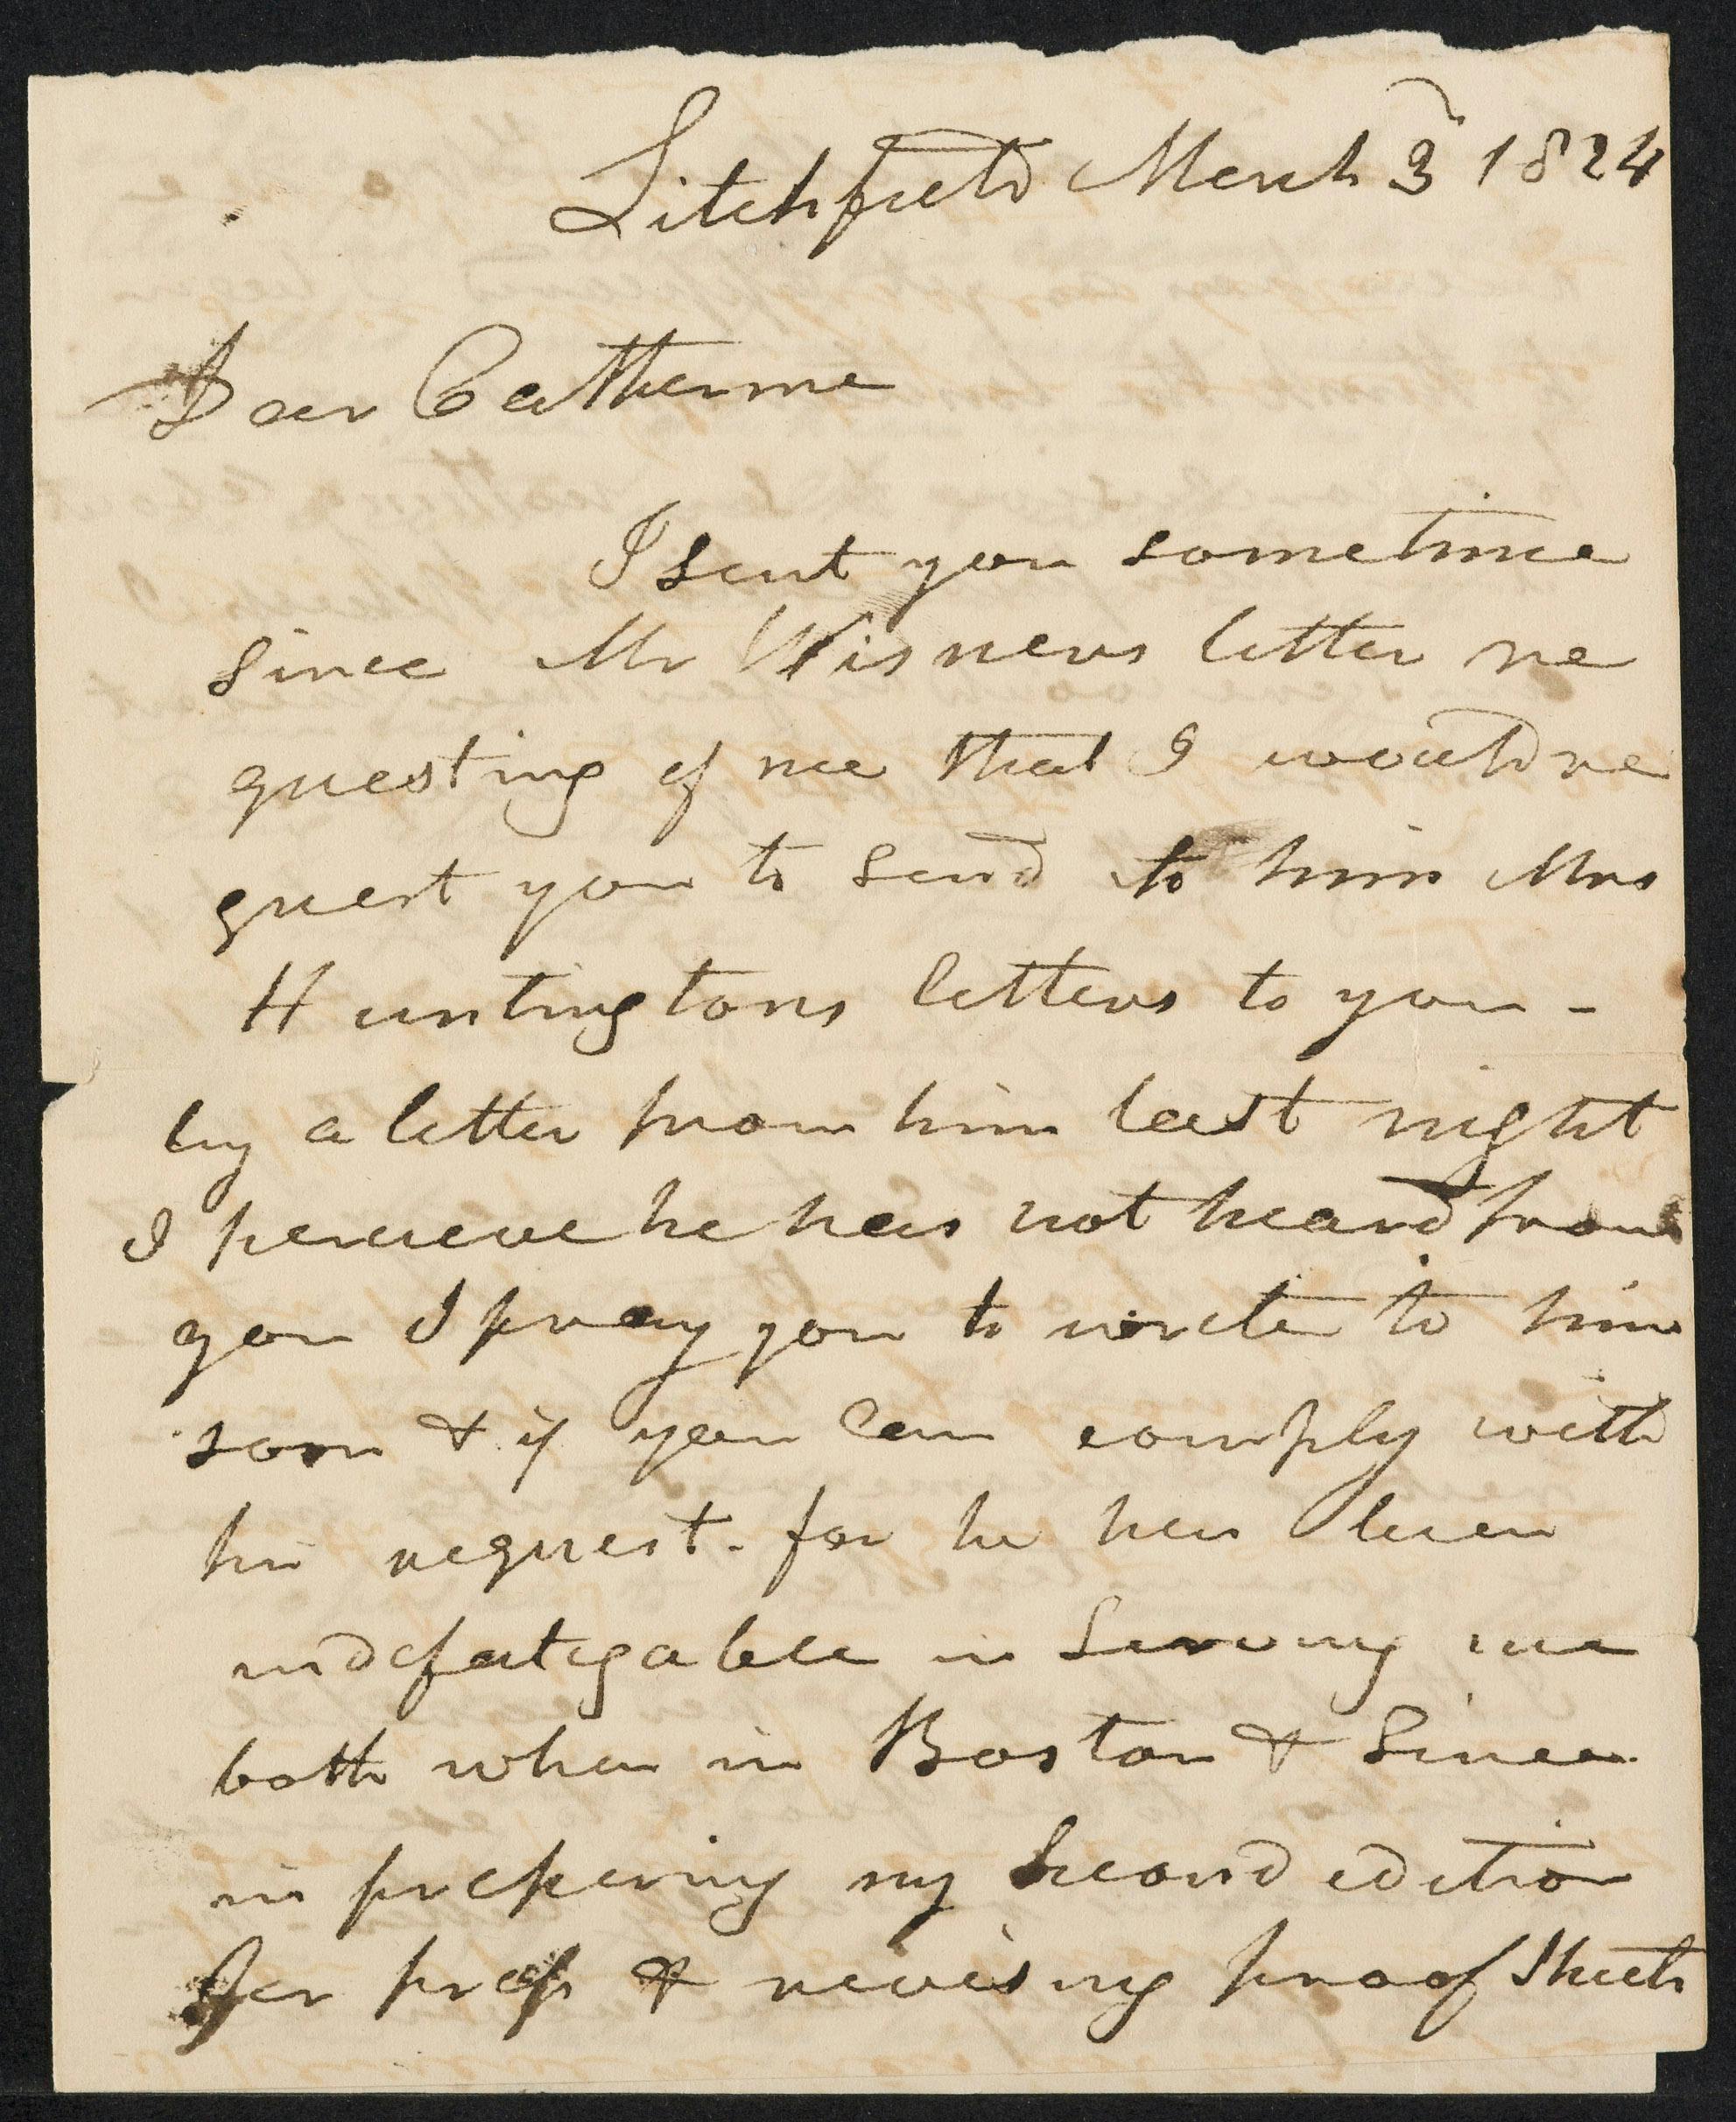 Litchfield March 3 1824
Dear Catherine
I sent you sometime
since Mr Wisners letter re
questing of me that I would re
quest you to send to him Mrs
Huntingtons letters to you -
by a letter from him last night
I perceive he has not heard from
you I pray you to write to him
soon & if you can comply with
his request. for he has been
indefatigable in serving me
both when in Boston & since
in prepering my second edition
for press & revising proof sheets